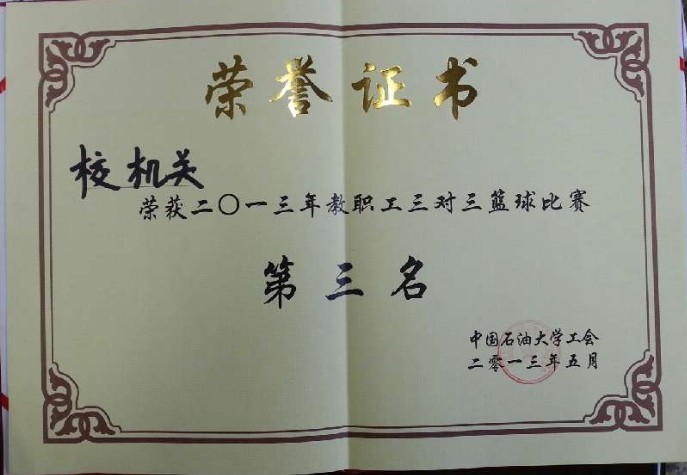 荣誉证书
校机关
荣获二〇一三年教职工三对三篮球比赛
第三名
中国石油大学工会
二零一三年五月